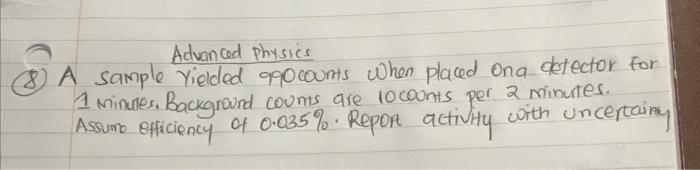 Advanced Physics
(8) A sample Yielded 990 counts when placed on a detector for
1 minutes. Background counts are 10 counts per 2 minutes.
Assume efficiency of 0.035%. Report activity with uncertainty